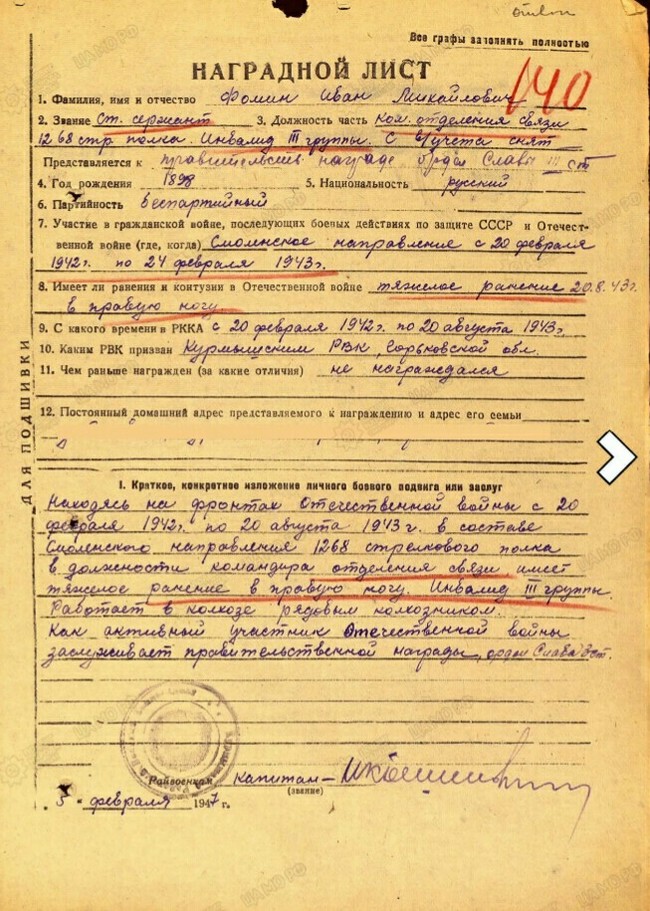 Все графы заполнять полностью
НАГРАДНОЙ ЛИСТ
140
1. Фамилия, имя и отчество Фомин Иван Михайлович
2. Звание Ст. сержант 3. Должность часть Ком. отделения связи
1268 стр полка. Инвалид III группы. С в/учета снят
Представляется к правительств. награде орден Славы III ст
4. Год рождения 1898 5. Национальность русский
6. Партийность Беспартийный
7. Участие в гражданской войне, последующих боевых действиях по защите СССР и Отечест-
венной войне (где, когда) Смоленское направление с 20 февраля
1942г. по 24 февраля 1943г.
8. Имеет ли ранения и контузии в Отечественной войне тяжелое ранение 20.8.43г.
в правую ногу.
9. С какого времени в РККА с 20 февраля 1942г. по 20 августа 1943г.
10. Каким РВК призван Курмышским РВК, Горьковской обл.
11. Чем раньше награжден (за какие отличия) не награждался
12. Постоянный домашний адрес представляемого к награждению и адрес его семьи
ДЛЯ ПОДШИВКИ
I. Краткое, конкретное изложение личного боевого подвига или заслуг
Находясь на фронтах Отечественной войны с 20
февраля 1942г. по 20 августа 1943 г. в составе
Смоленского направления 1268 стрелкового полка
в должности командира отделения связи имеет
тяжелое ранение в правую ногу. Инвалид III группы.
Работает в колхозе рядовым колхозником.
Как активный участник Отечественной войны
заслуживает правительственной награды, орден Славы 3 ст.
Райвоенком капитан-
(звание)
5 февраля 1947 г.